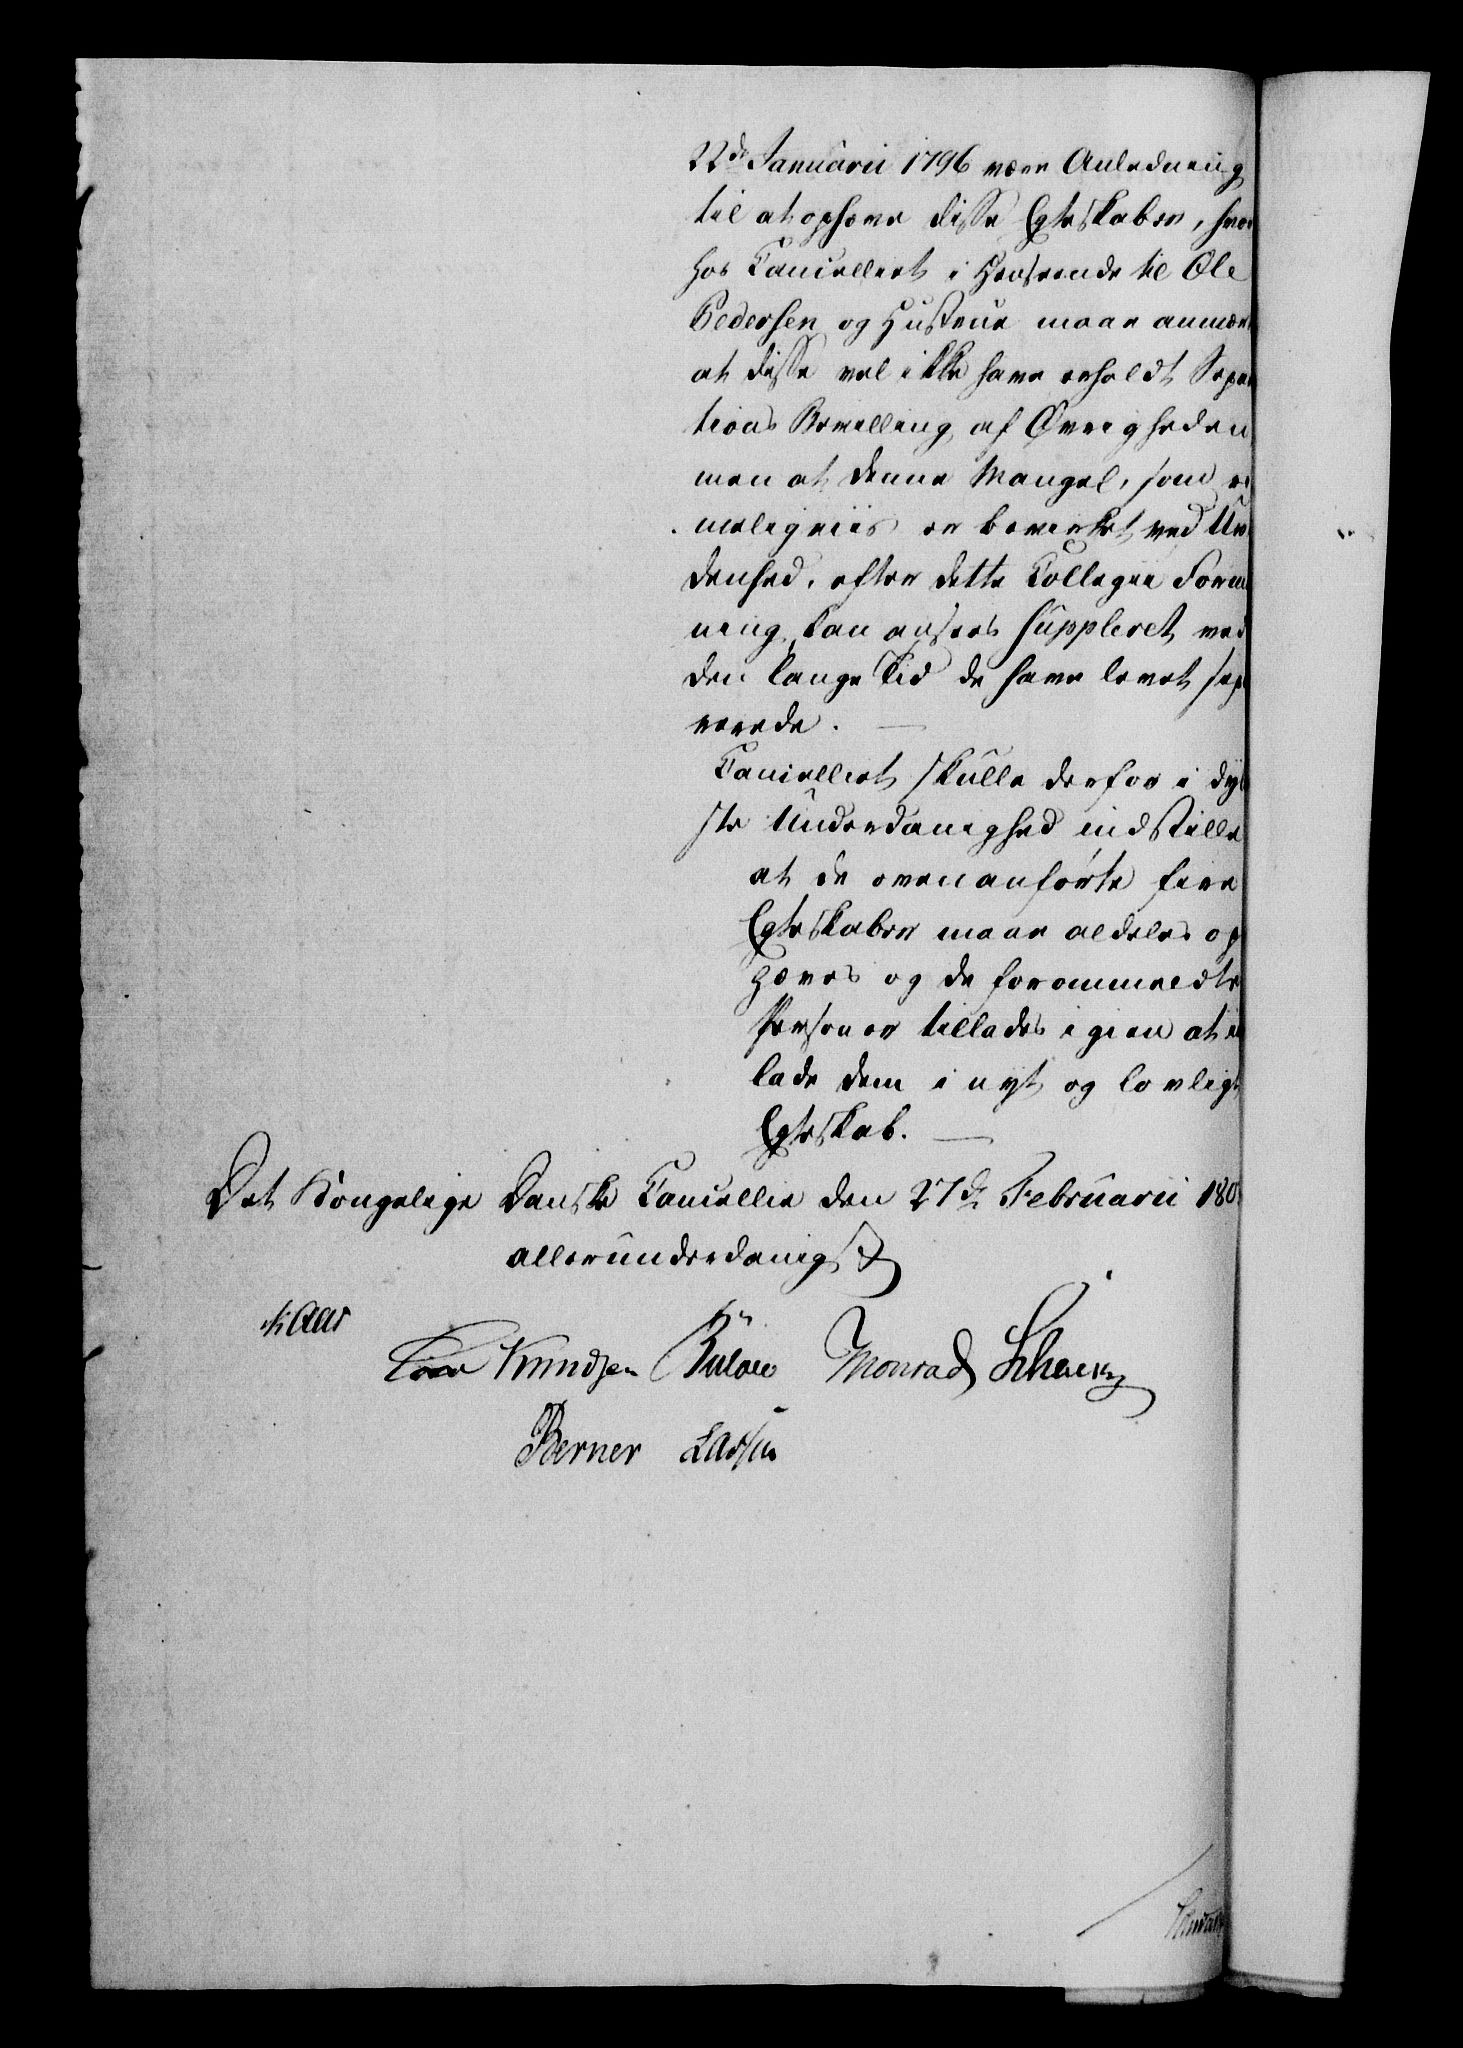 22de Januarii 1796 være Anledning
til at ophæve disse Egteskaber, hvor
hos Cancelliet i Henseende til Ole
Pedersen og Hustrue maae anmær
at disse vel ikke have erholdt Sepa
tions Bevilling af Øvrigheden
men at denne Mangel, som ri
meligviis er bevirket ved Uvi
denhed, efter dette Collegii Form
ning, kan ansees suppleret ved
den lange Tid de have levet sepa
rerede.
Cancelliet skulle derfor i dyb
ste Underdanighed indstille
at de ovenanførte fire
Egteskaber maae aldeles op
hæves og de forommeldte
Personer tillades igien at ind
lade dem i nyt og lovligt
Egteskab.
Det Kongelige Danske Cancellie den 27de Februarii 180
allerunderdanigst
Kaas
Knudsen Bülow Monrad Schenck
Berner Lassen